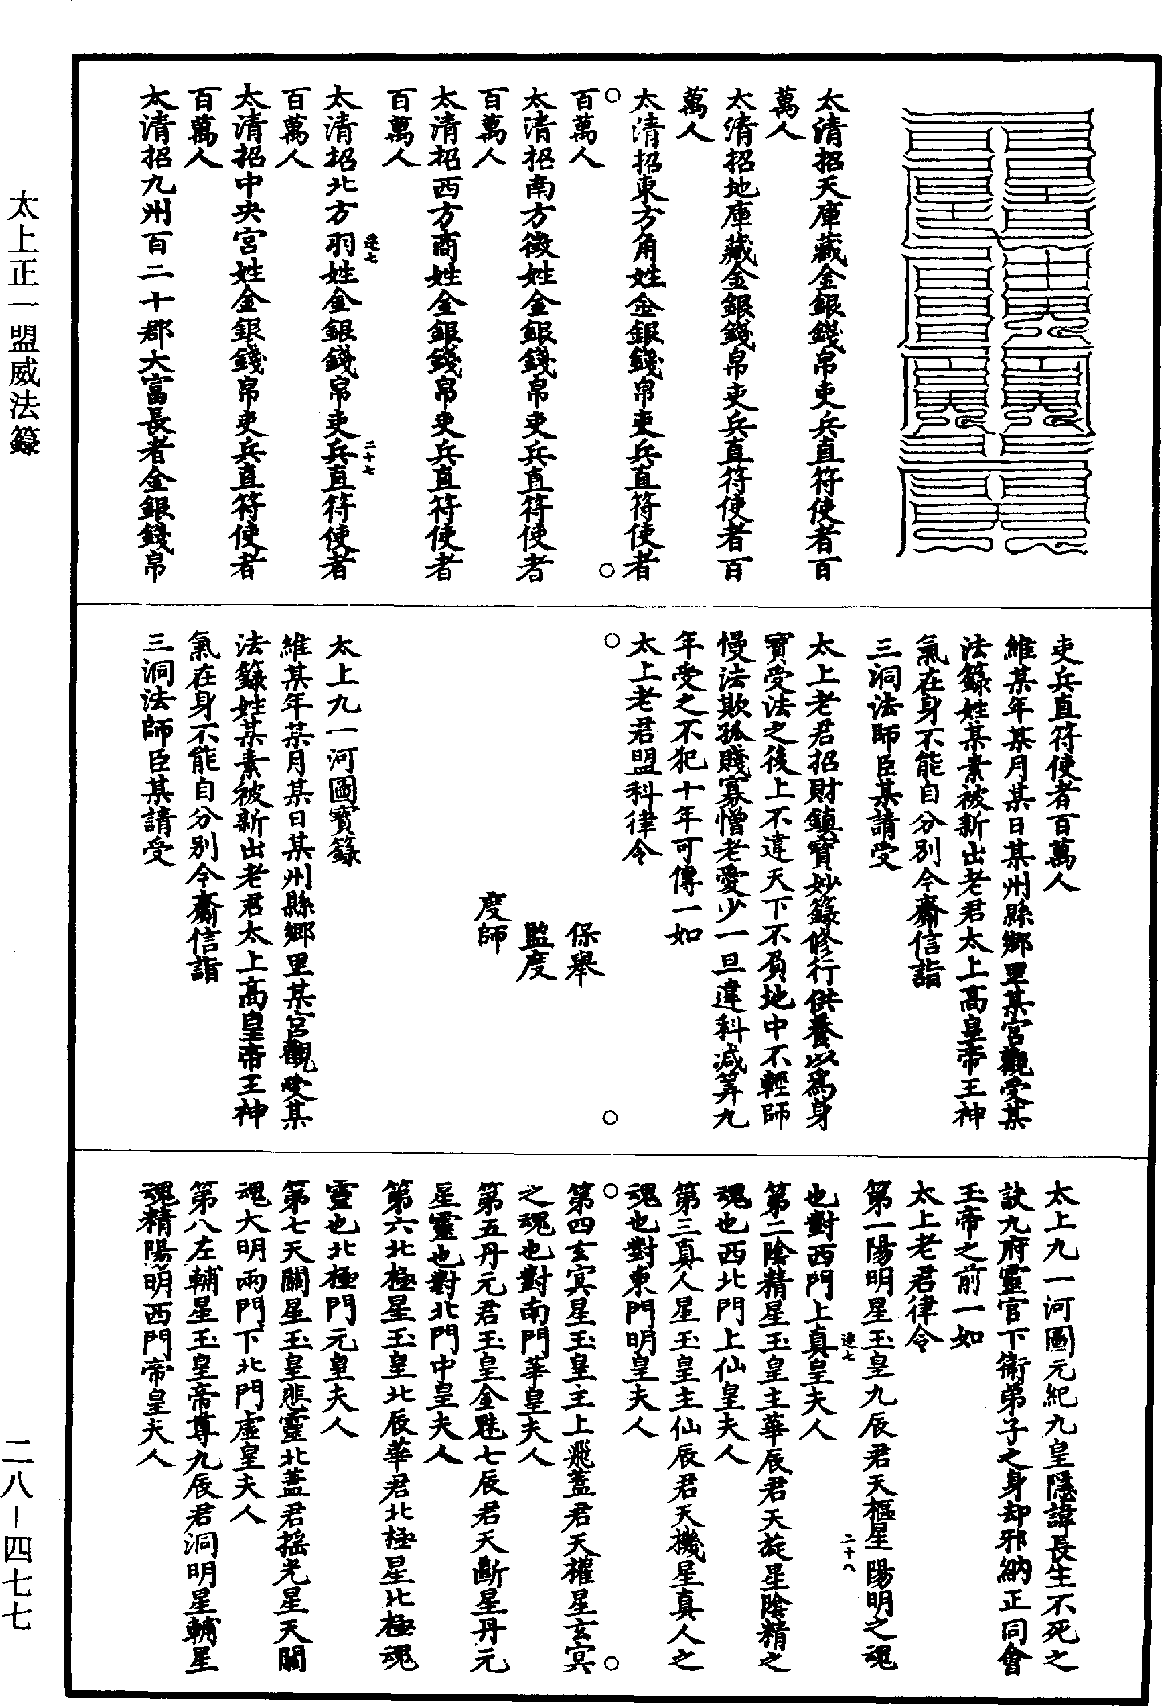 太清招天庫藏金銀錢帛吏兵直符使者百
萬人
太清招地庫藏金銀錢帛吏兵直符使者百
萬人
太清招東方角姓金銀錢帛吏兵直符使者
百萬人
太清招南方徵姓金銀錢帛吏兵直符使者
百萬人
太清招西方商姓金銀錢帛吏兵直符使者
百萬人
太清招北方羽姓金銀錢帛吏兵直符使者
逹七
二十七
百萬人
太清招中央宮姓金銀錢帛吏兵直符使者
百萬人
太清招九州百二十郡大富長者金銀錢帛
吏兵直符使者百萬人
維某年某月某日某州縣鄉里某宮觀受某
法籙姓某素被新出老君太上高皇帝王神
氣在身不能自分別今齋信詣
三洞法師臣某請受
太上老君招財鎮寶妙籙修行供養以為身
寶受法之後上不違天下不負地中不輕師
慢法欺孤賤寡憎老愛少一旦違科減筭九
年受之不犯十年可傳一如
太上老君盟科律令
保舉
監度
度師
太上九一河圖寶籙
維某年某月某日某州縣鄉里某宮觀受某
法籙姓某素被新出老君太上高皇帝王神
氣在身不能自分別今齋信詣
三洞法師臣某請受
太上九一河圖元紀九皇隱諱長生不死之
訣九府靈官下衛弟子之身却邪納正同會
玉帝之前一如
太上老君律令
第一陽明星玉皇九辰君天樞星陽明之魂
逹七
二十八
也對西門上真皇夫人
第二陰精星玉皇主華辰君天旋星陰精之
魂也西北門上仙皇夫人
第三真人星玉皇主仙辰君天機星真人之
魂也對東門明皇夫人
第四玄冥星玉皇主上飛蓋君天權星玄冥
之魂也對南門華皇夫人
第五丹元君玉皇金魁七辰君天斷星丹元
星靈也對北門中皇夫人
第六北極星玉皇北辰華君北極星北極魂
靈也北極門元皇夫人
第七天關星玉皇悲靈北蓋君搖光星天關
魂大明兩門下北門虛皇夫人
第八左輔星玉皇帝尊九辰君洞明星輔星
魂精陽明西門帝皇夫人
太上正一盟威法籙
二八－四七七